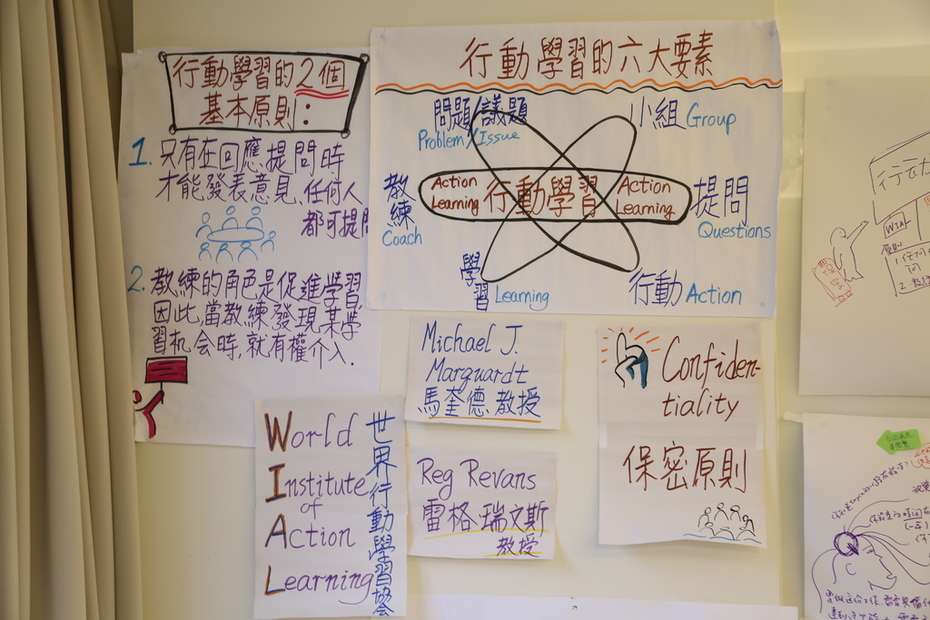 行動學習的2個
基本原則：
1. 只有在回應提問時
才能發表意見、任何人
都可提問
2. 教練的角色是促進學習,
因此,當教練發現某學
習机会時,就有權介入.
行動學習的六大要素
問題/議題
Problem/Issue
小組 Group
教練
Coach
Action
Learning
行動學習
Action
Learning
提問
Questions
學習
Learning
行動 Action
Michael J.
Marquardt
馬奎德 教授
Reg Revans
雷格 瑞文斯
教授
Confiden-
tiality
保密原則
World
Institute
of
Action
Learning
世界行動學習協会
WIAL
原則